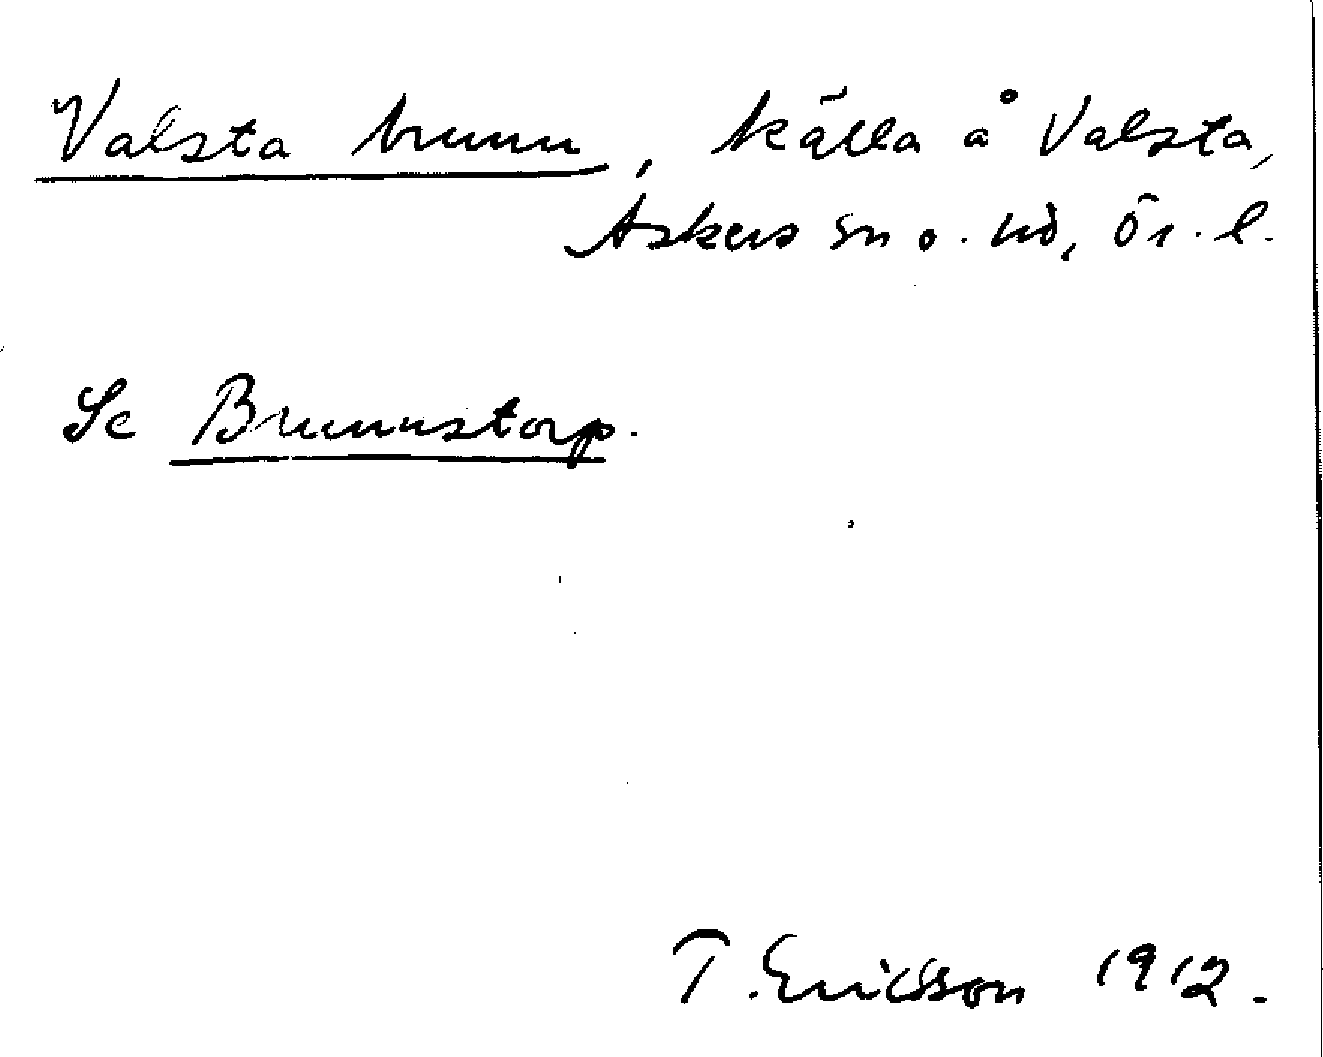 Valsta brunn, källa å Valsta,
Askers sn o. hd, Ör. l.
Se Brunnstorp.
T. Ericsson 1912.